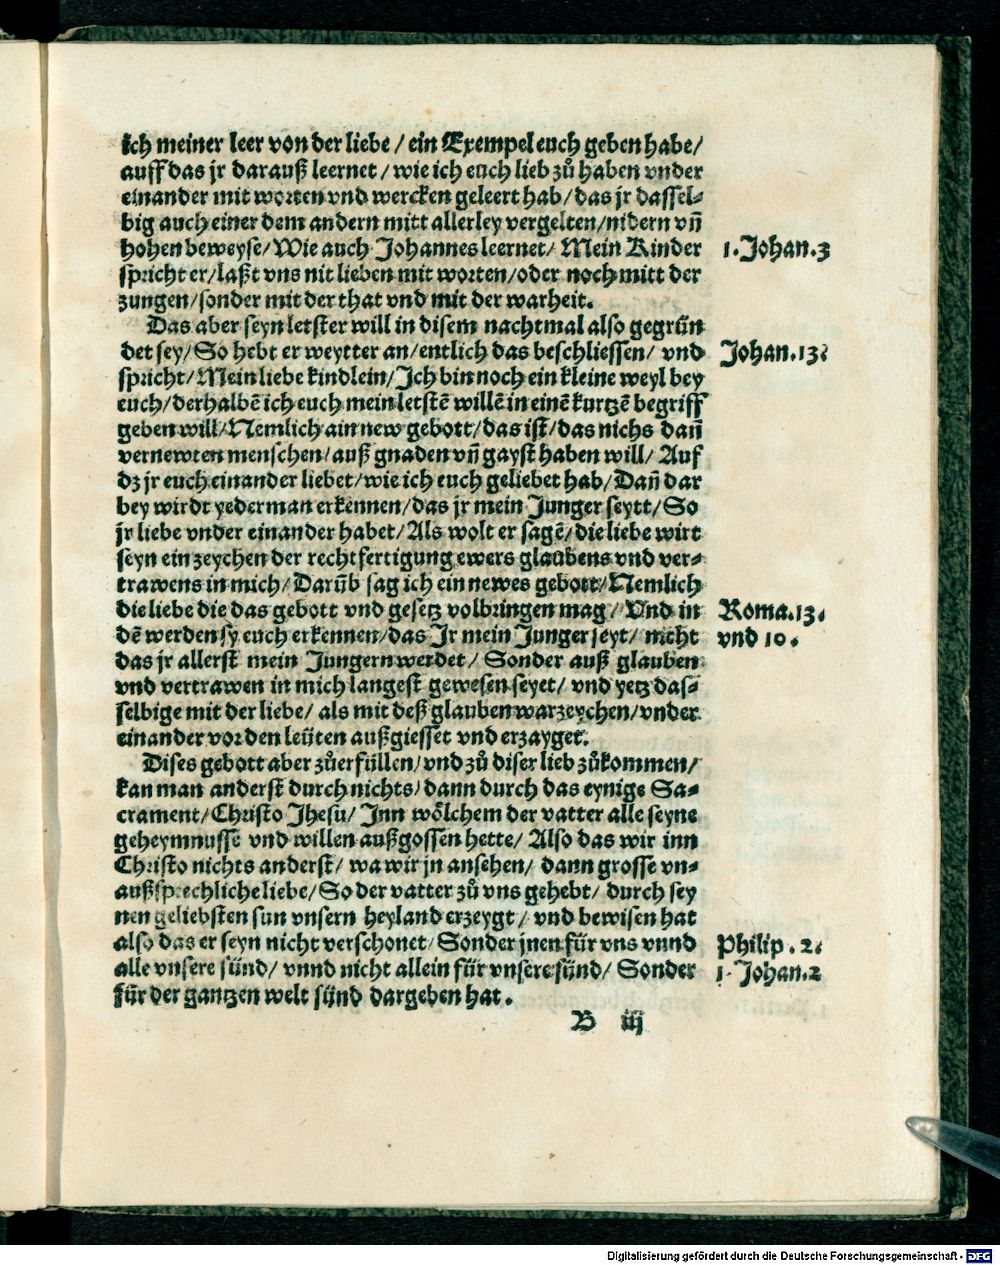 ich meiner leer von der liebe / ein Exempel euch geben habe /
auff das jr darauß leernet / wie ich euch lieb zů haben vnder
einander mit worten vnd wercken geleert hab / das jr dassel-
big auch einer dem andern mitt allerley vergelten / nidern vñ
hohen beweyse / Wie auch Johannes leernet / Mein Kinder
1. Johan. 3
spricht er / laßt vns nit lieben mit worten / oder noch mitt der
zungen / sonder mit der that vnd mit der warheit.
Das aber seyn letster will in disem nachtmal also gegrün
det sey / So hebt er weytter an / entlich das beschliessen / vnd
Johan. 13.
spricht / Mein liebe kindlein / Ich bin noch ein kleine weyl bey
euch / derhalbē ich euch mein letstē willē in einē kurtzē begriff
geben will / Nemlich ain new gebott / das ist / das nichs dañ
vernewten menschen / auß gnaden vñ gayst haben will / Auf
dz jr euch einander liebet / wie ich euch geliebet hab / Dañ dar
bey wirdt yederman erkennen / das jr mein Junger seytt / So
jr liebe vnder einander habet / Als wolt er sagē / die liebe wirt
seyn ein zeychen der rechtfertigung ewers glaubens vnd ver-
trawens in mich / Darūb sag ich ein newes gebott / Nemlich
die liebe die das gebott vnd gesetz volbringen mag / Vnd in
Roma. 13.
dē werden sy euch erkennen / das Jr mein Junger seyt / nicht
vnd 10.
das jr allerst mein Jungern werdet / Sonder auß glauben
vnd vertrawen in mich langest gewesen seyet / vnd yetz das-
selbige mit der liebe / als mit deß glauben warzeychen / vnder
einander vor den leüten außgiesset vnd erzayget.
Dises gebott aber zůerfüllen / vnd zů diser lieb zůkommen /
kan man anderst durch nichts / dann durch das eynige Sa-
crament / Christo Jhesu / Inn wölchem der vatter alle seyne
geheymnusse vnd willen außgossen hette / Also das wir inn
Christo nichts anderst / wa wir jn ansehen / dann grosse vn-
außsprechliche liebe / So der vatter zů vns gehebt / durch sey
nen geliebsten sun vnsern heyland erzeygt / vnd bewisen hat
also das er seyn nicht verschonet / Sonder jnen für vns vnnd
Philip. 2.
alle vnsere sünd / vnnd nicht allein für vnsere sünd / Sonder
1. Johan. 2
für der gantzen welt sünd dargeben hat.
B iij
Digitalisierung gefördert durch die Deutsche Forschungsgemeinschaft - DFG